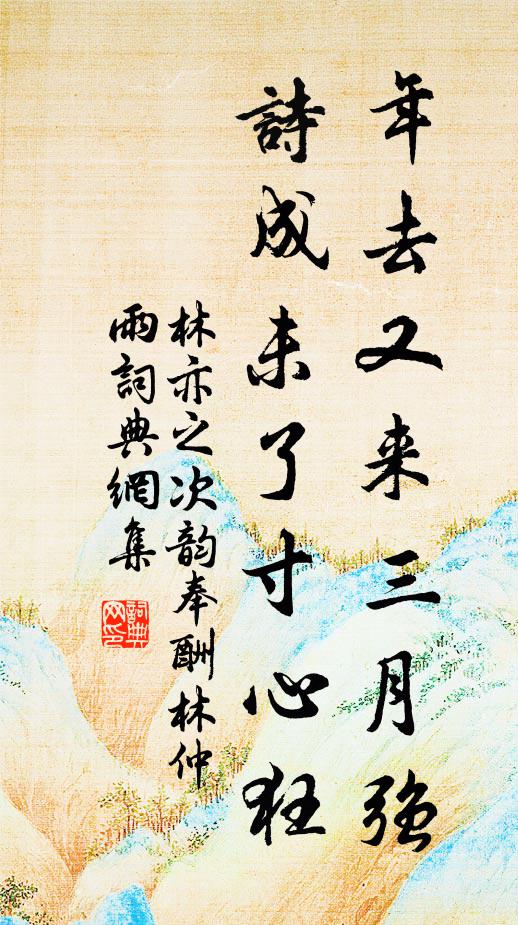 年去又来三月強
詩成未了寸心狂
林亦之次韵奉酬林仲
雨詞典網集
詞典
网印